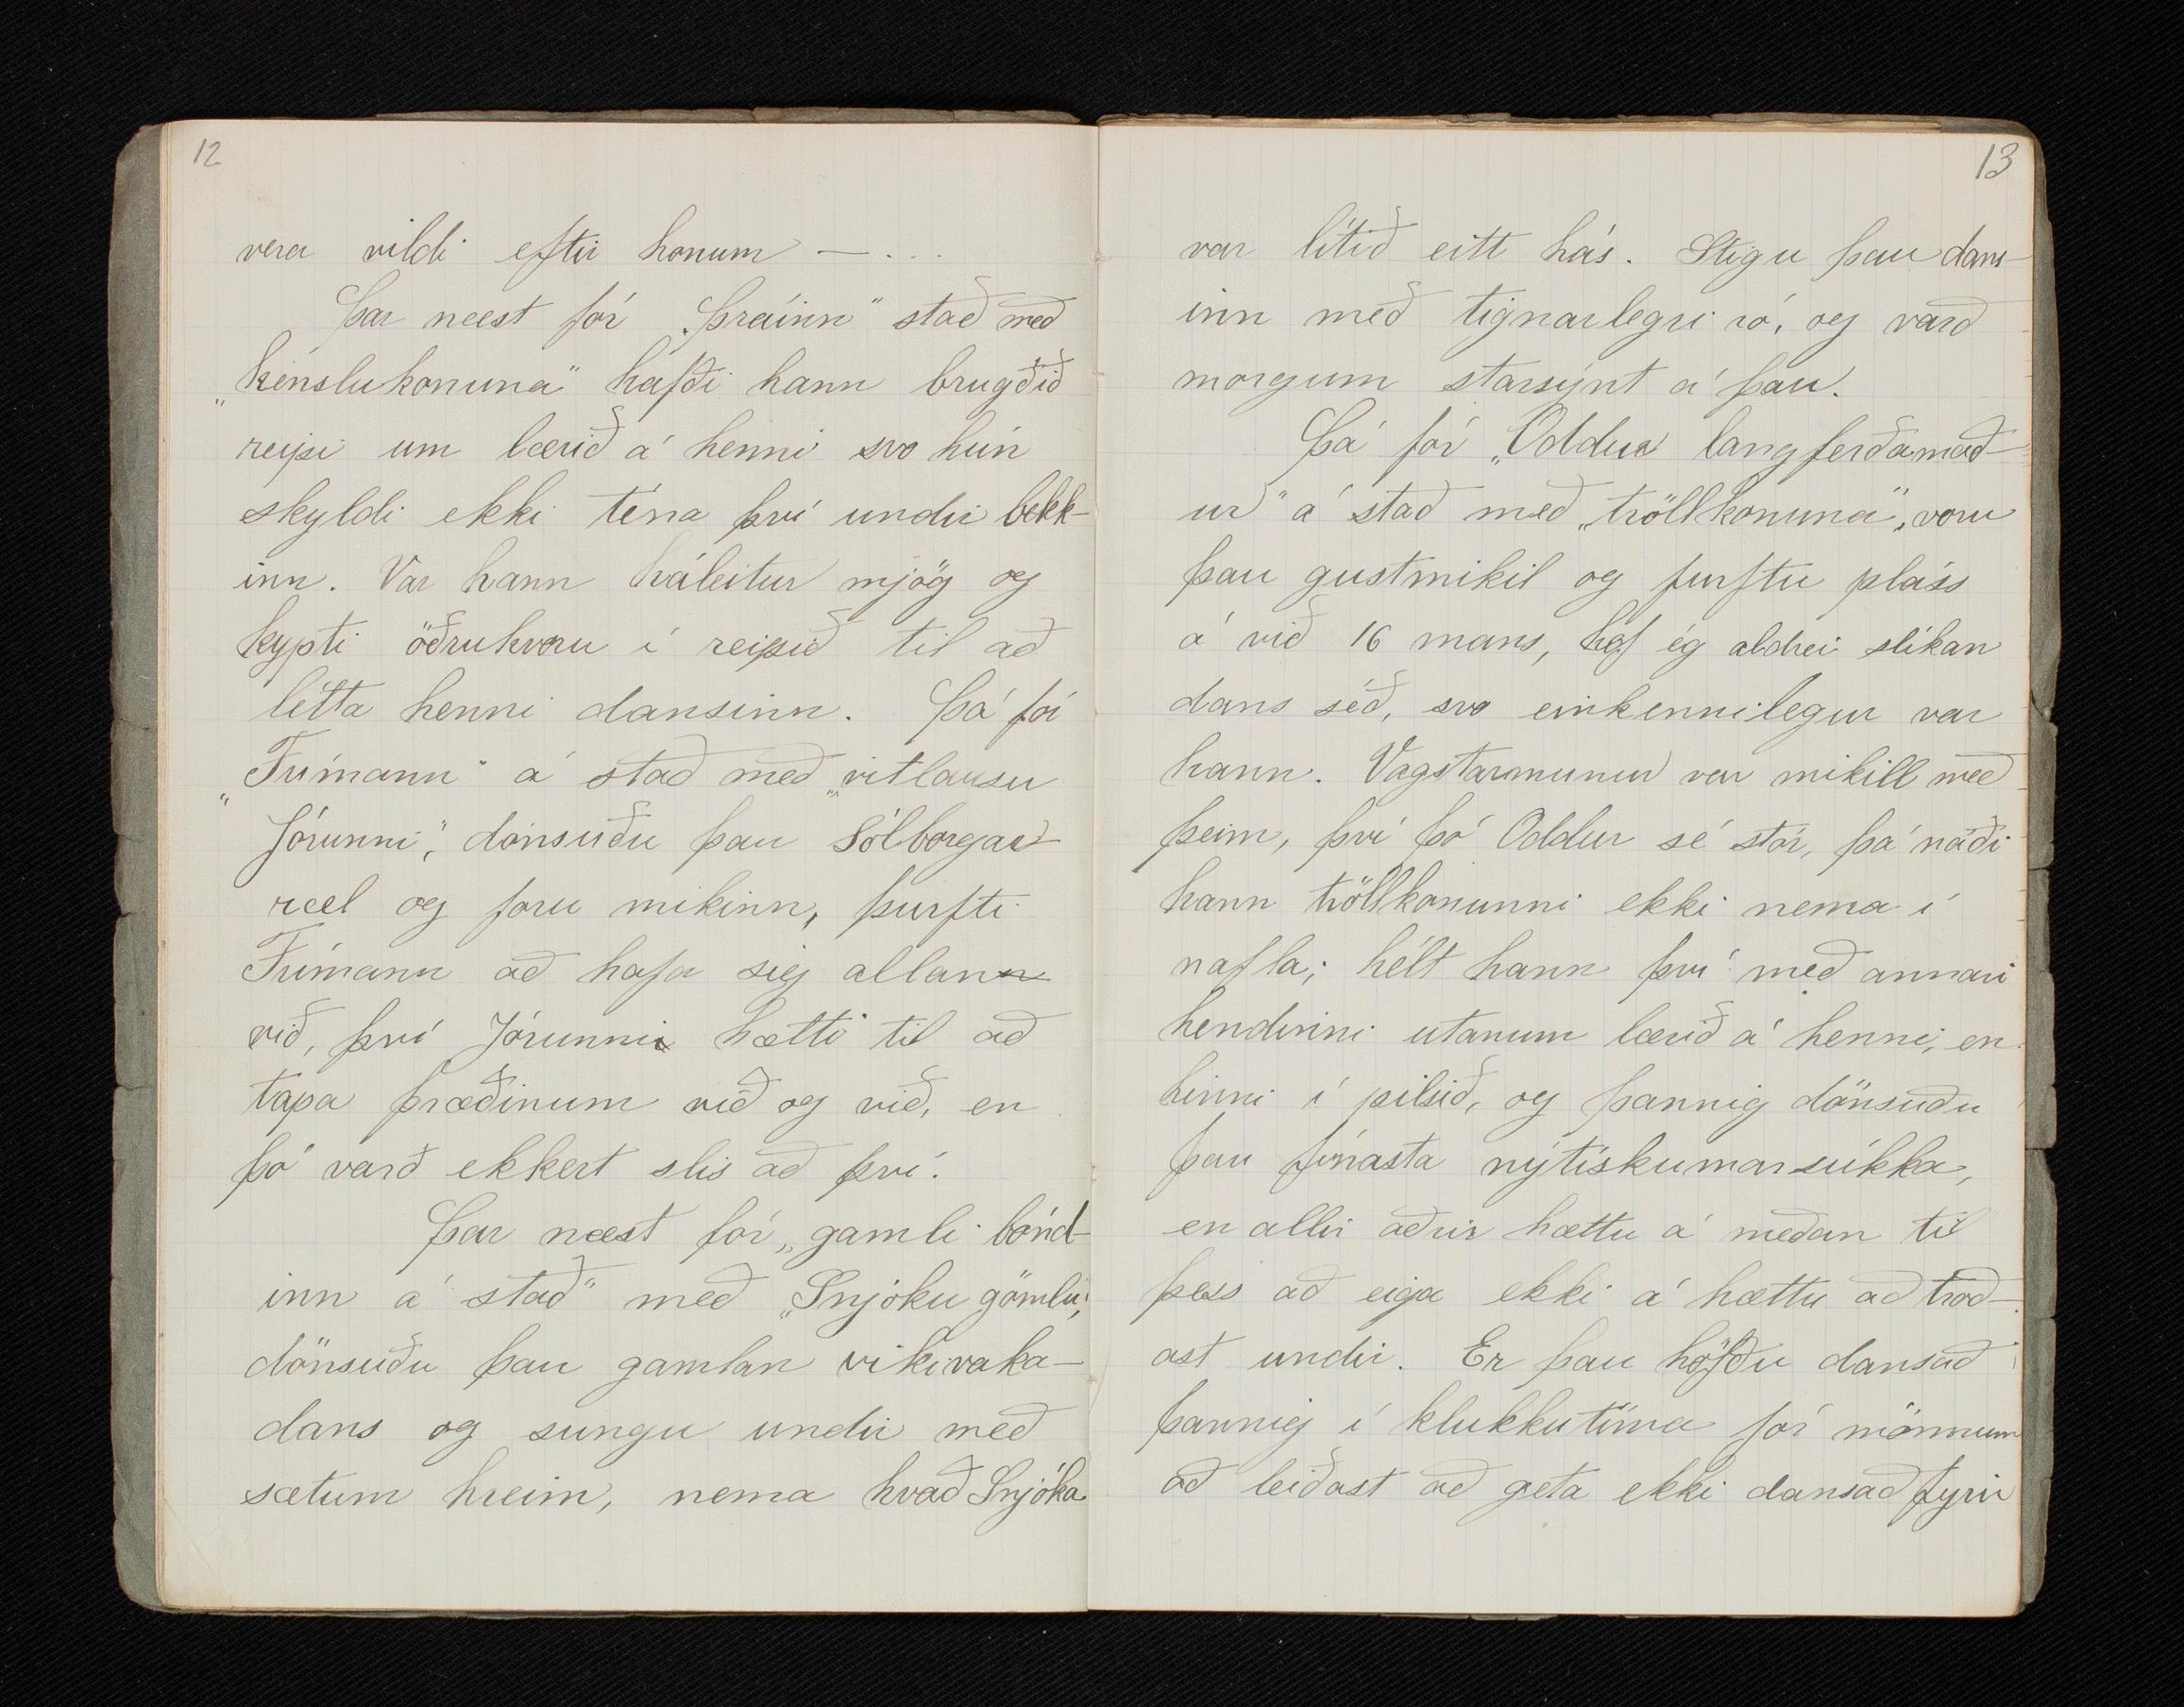 12
vera vildi eftir honum — . . .
Þar næst fór „Þráinn" stað með
„kénslukonuna" hafði hann brugðið
reipi um lærið á henni svo hún
skyldi ekki téna því undir bekk-
inn. Var hann háleitur mjög og
kypti öðruhvoru í reipið til að
létta henni dansinn. Þá fór
„Frímann" á stað með „vitlausu
Jórunni", dönsuðu þau Sólborgar-
ræl og foru mikinn, þurfti
Frímann að hafa sig allan
við, því Jórunni hætti til að
tapa þræðinum við og við, en
þó varð ekkert slis að því.
Þar næst fór „gamli bónd-
inn á stað" með „Snjóku gömlu",
dönsuðu þau gamlan vikivaka-
dans og sungu undir með
sætum hreim, nema hvað Snjóka
13
var lítið eitt hás. Stigu þau dans-
inn með tignarlegri ró, og varð
morgum starsýnt á þau.
Þá fór „Oddur langferðamað-
ur" á stað með „tröllkonuna", voru
þau gustmikil og þurftu pláss
á við 16 mans, hef ég aldrei slíkan
dans séð, svo einkennilegur var
hann. Vagstarmunur var mikill með
þeim, því þó Oddur sé stór, þá náði
hann tröllkonunni ekki nema í
nafla; hélt hann því með annari
hendinni utanum lærið á henni, en
hinni í pilsið, og þannig dönsuðu
þau fínasta nýtískumarsúkka,
en allir aðrir hættu á meðan til
þess að eiga ekki á hættu að troð-
ast undir. Er þau höfðu dansað
þannig í klukkutíma fór mönnum
að leiðast að geta ekki dansað fyrir